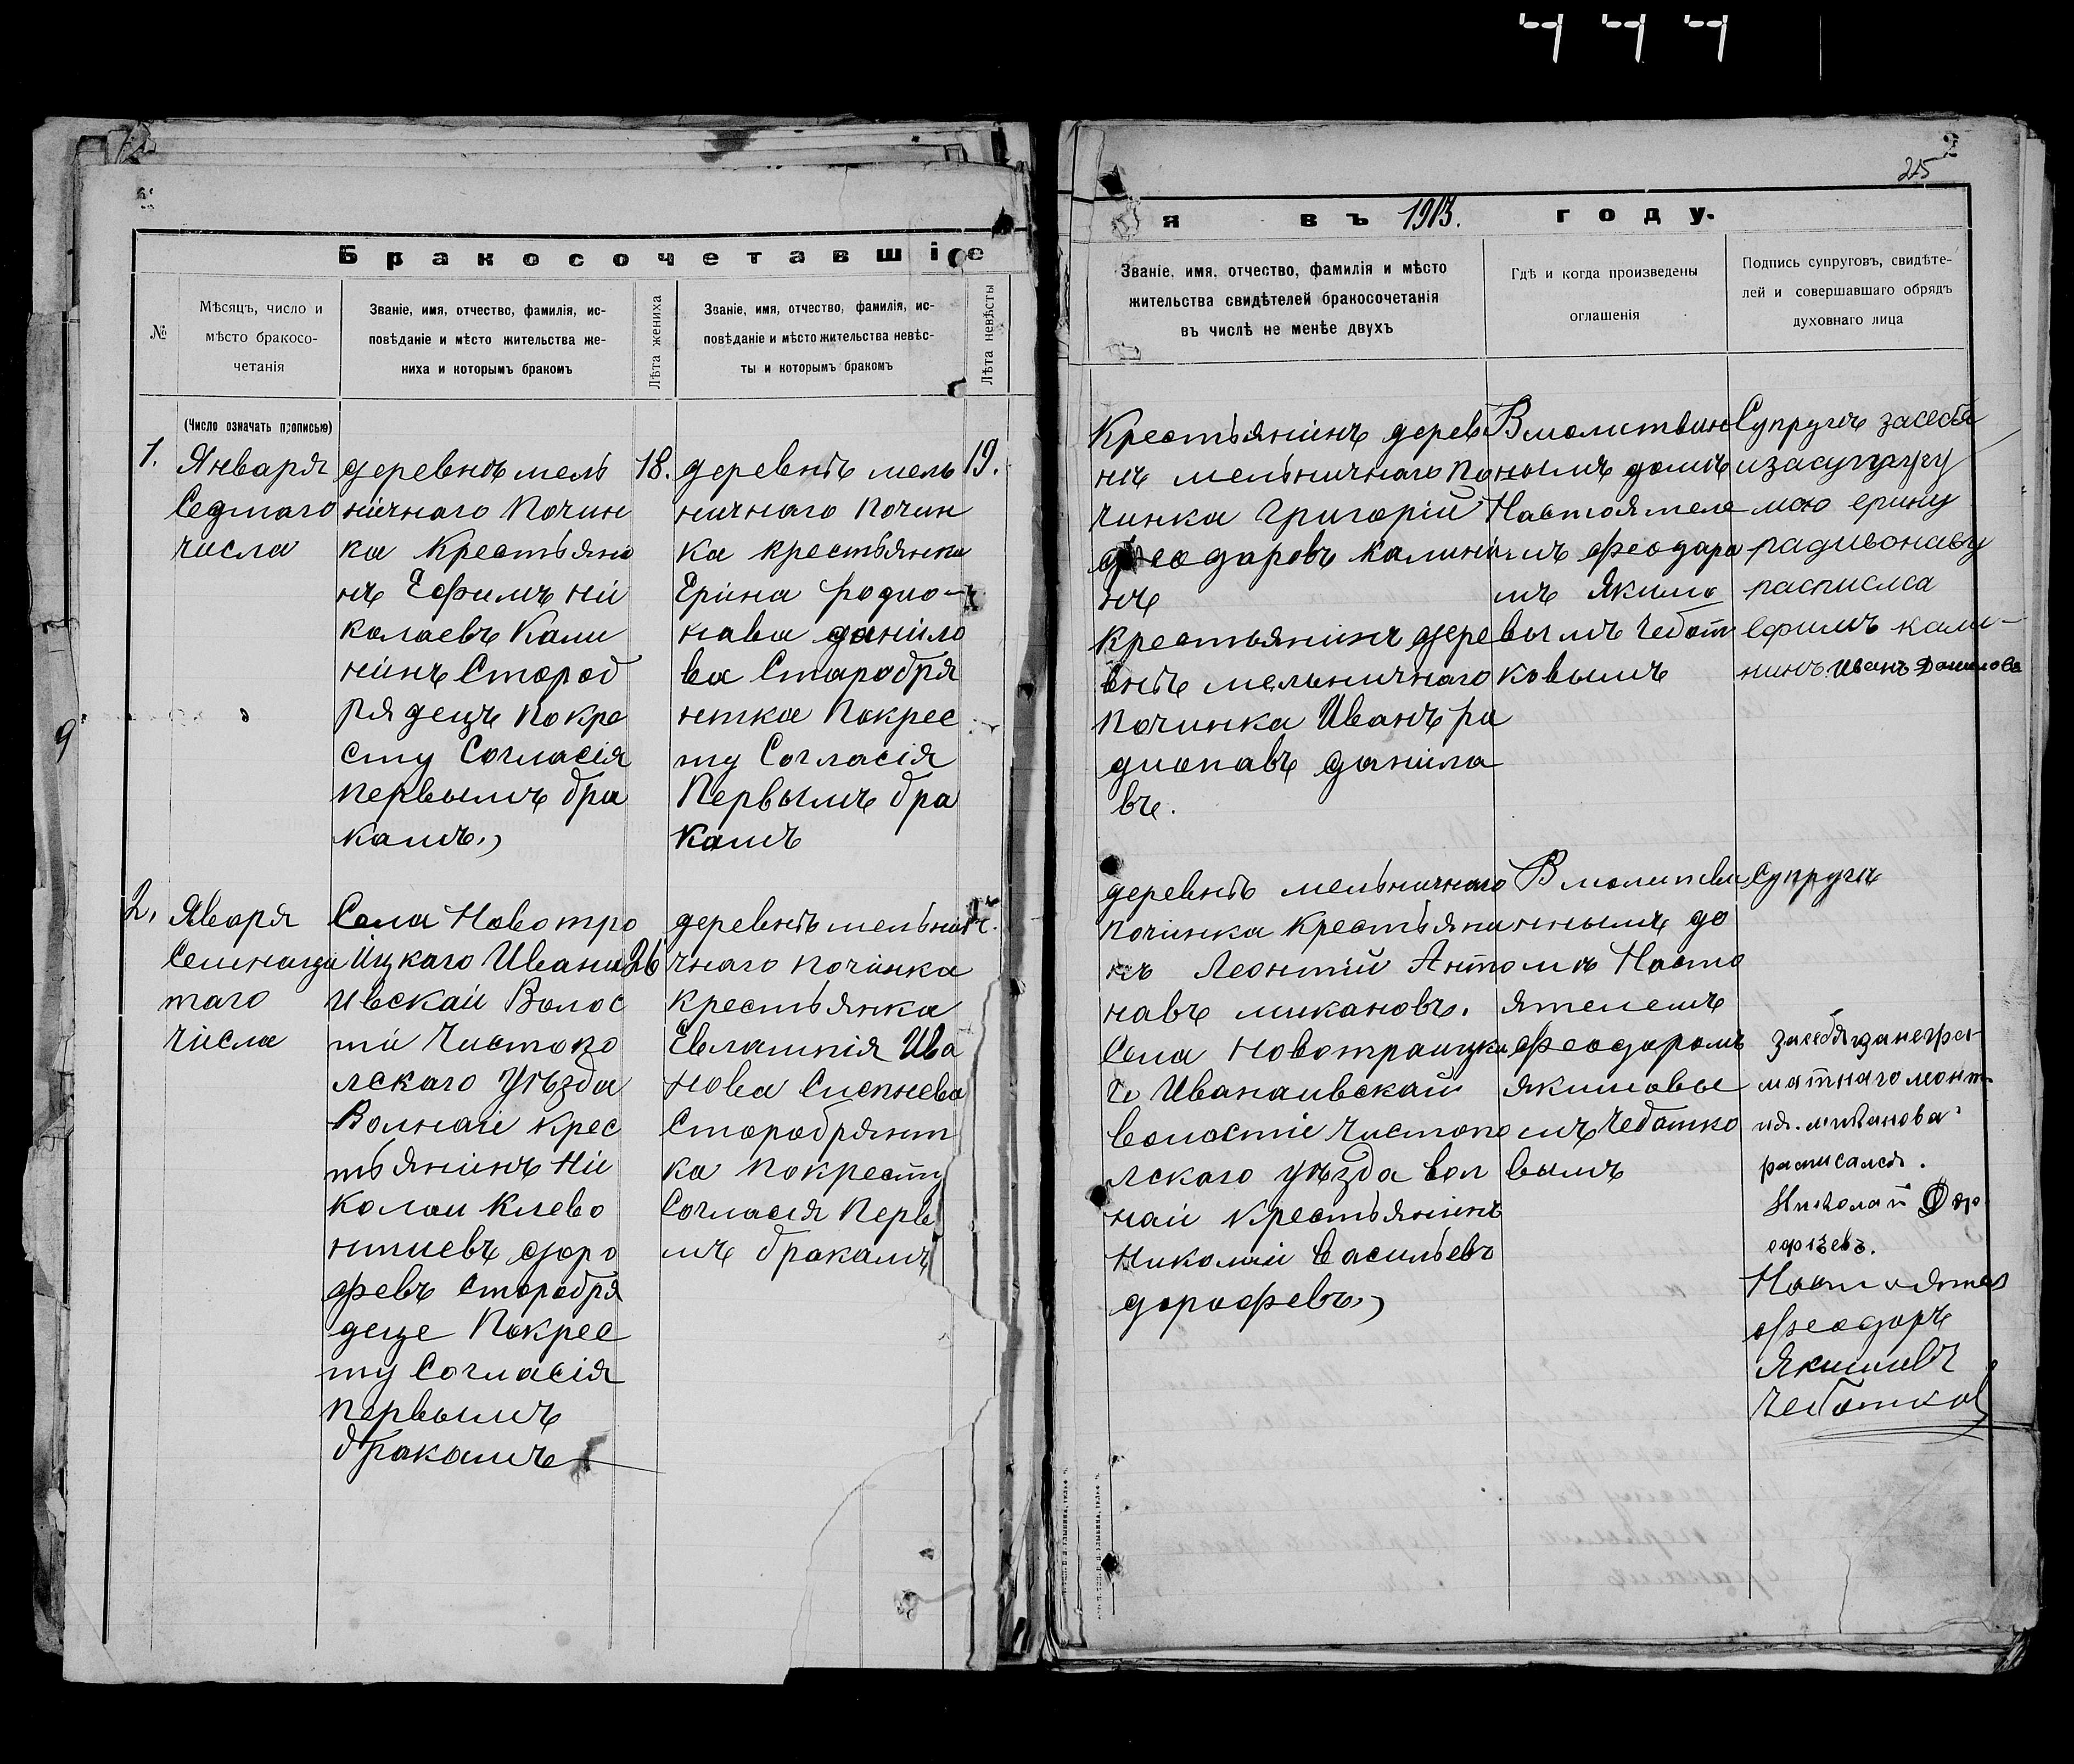 25
Бракосочетавшіе
я въ 1913. году.
№
Мѣсяцъ, число и
мѣсто бракосо-
четанія
Званіе, имя, отчество, фамилія, ис-
повѣданіе и мѣсто жительства же-
ниха и которымъ бракомъ
Лѣта жениха
Званіе, имя, отчество, фамилія, ис-
повѣданіе и мѣсто жительства невѣс-
ты и которымъ бракомъ
Лѣта невѣсты
Званіе, имя, отчество, фамилія и мѣсто
жительства свидѣтелей бракосочетанія
въ числѣ не менѣе двухъ
Гдѣ и когда произведены
оглашенія
Подпись супруговъ, свидѣте-
лей и совершавшаго обрядъ
духовнаго лица
(Число означать прописью)
1.
Января
Седмаго
числа
деревнѣ мель
ничнаго Почин
ка Крестьяни
нъ Ефимъ Ни
калаевъ Кали
нинъ Старод
рядецъ Покре
сту Согласія
первымъ бра
камъ.
18.
деревнѣ мель
ничнаго Почин
ка крестьянка
Ерина родио-
нава данило
ва Старобря
нтка Покрес
ту Согласія
Первымъ бра
камъ
19.
Крестьянинъ дерев
нѣ мельничнаго По
чинка Григорій
феодаровъ калини
нъ
крестьянинъ дере
внѣ мельничнаго
Починка Иванъ ра
дионавъ данила
въ.
В молитвин
нымъ домѣ
Настоятеле
мъ феодара
мъ Якимо
вымъ Чебот
ковымъ
Супругъ засебя
изасупругу
мою ерину
радивонаву
расписмса
ефимъ кали-
нинъ. Иванъ Данилова
2.
Яваря
Семнаца
таго
числа
Села Новотро
ицкаго Ивана
ивскаи Волос
ти Чистопо
лскаго Уѣзда
Волнаи крес
тьянинъ Ни
колаи Клево
нтиевъ доро
февъ Старобря
деце Покрес
ту Согласія
первымъ
бракамъ
26
деревнѣ мельни
чнаго починка
крестьянка
Евлампія Ива
нова Сипнева
Старобрянт
ка Покресту
Согласія Перв
мъ бракамъ
деревнѣ мельничнаго
починка Крестьяни
нъ Леонтій Анто
навъ микановъ.
Села Новотраицка
го Иванаивскай
волости чистопо
лскаго уѣзда вол
наи крестьянинъ
Николаи Васильевъ
дорофевъ.
В малитви
ннымъ до
мѣ Насто
ятелемъ
феодоромъ
якимовы
мъ Чеботко
вымъ
Супруги
засебя занегра
матнаго леонт
ия. миканова
расписался.
Николай Дор
офѣевъ.
Настоятел
феодоръ
Якимивъ
Чеботков